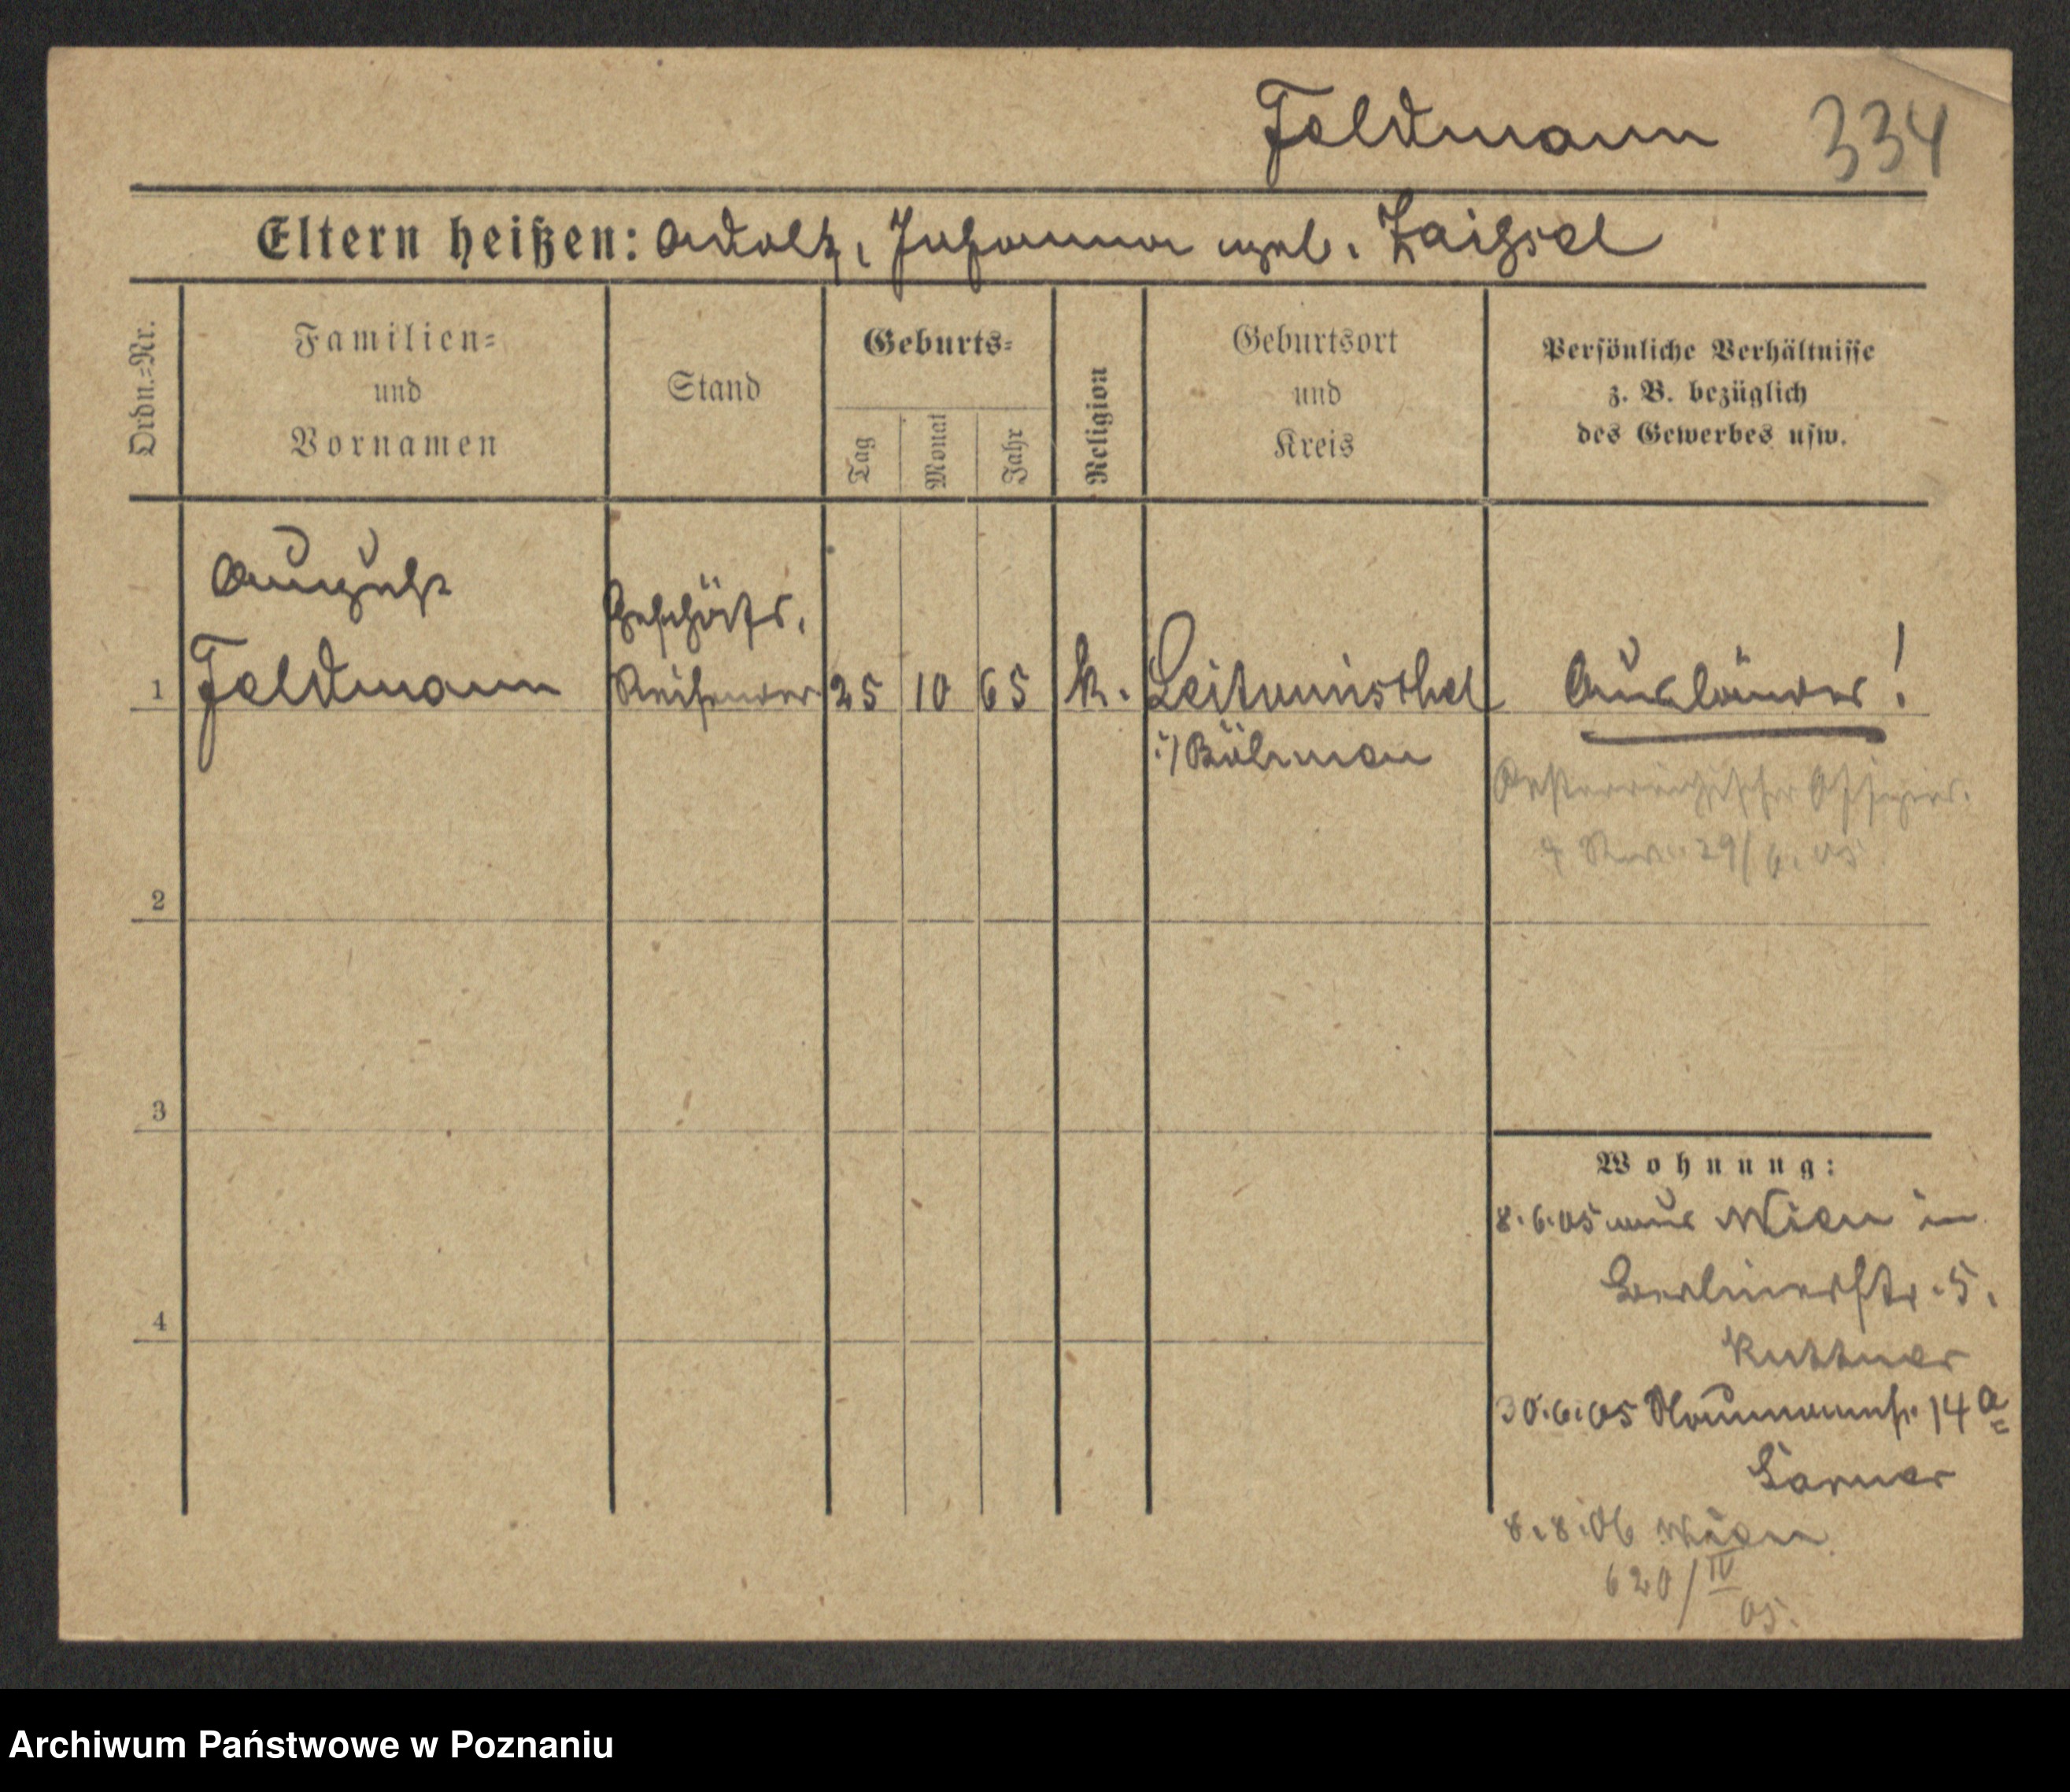 Feldmann 334
Eltern heißen: Adolf, Johanna geb. Zaihsel
Ordn.=Nr.
Familien=
und
Vornamen
Stand
Geburts=
Tag
Monat
Jahr
Religion
Geburtsort
und
Kreis
Persönliche Verhältnisse
z. B. bezüglich
des Gewerbes usw.
August
Geschäfts.
1 Feldmann Reisender 25 10 65 k. Ausländer!
i/Böhmen
Oesterreichischer Offizier.
29/6. 05
2
3
Wohnung:
8.6.05 aus Wien in
Berlinerstr. 5.
Kuttner
4
30.6.05 Naumannstr. 14a
8.8.06 Wien
620/IV
05.
Archiwum Państwowe w Poznaniu